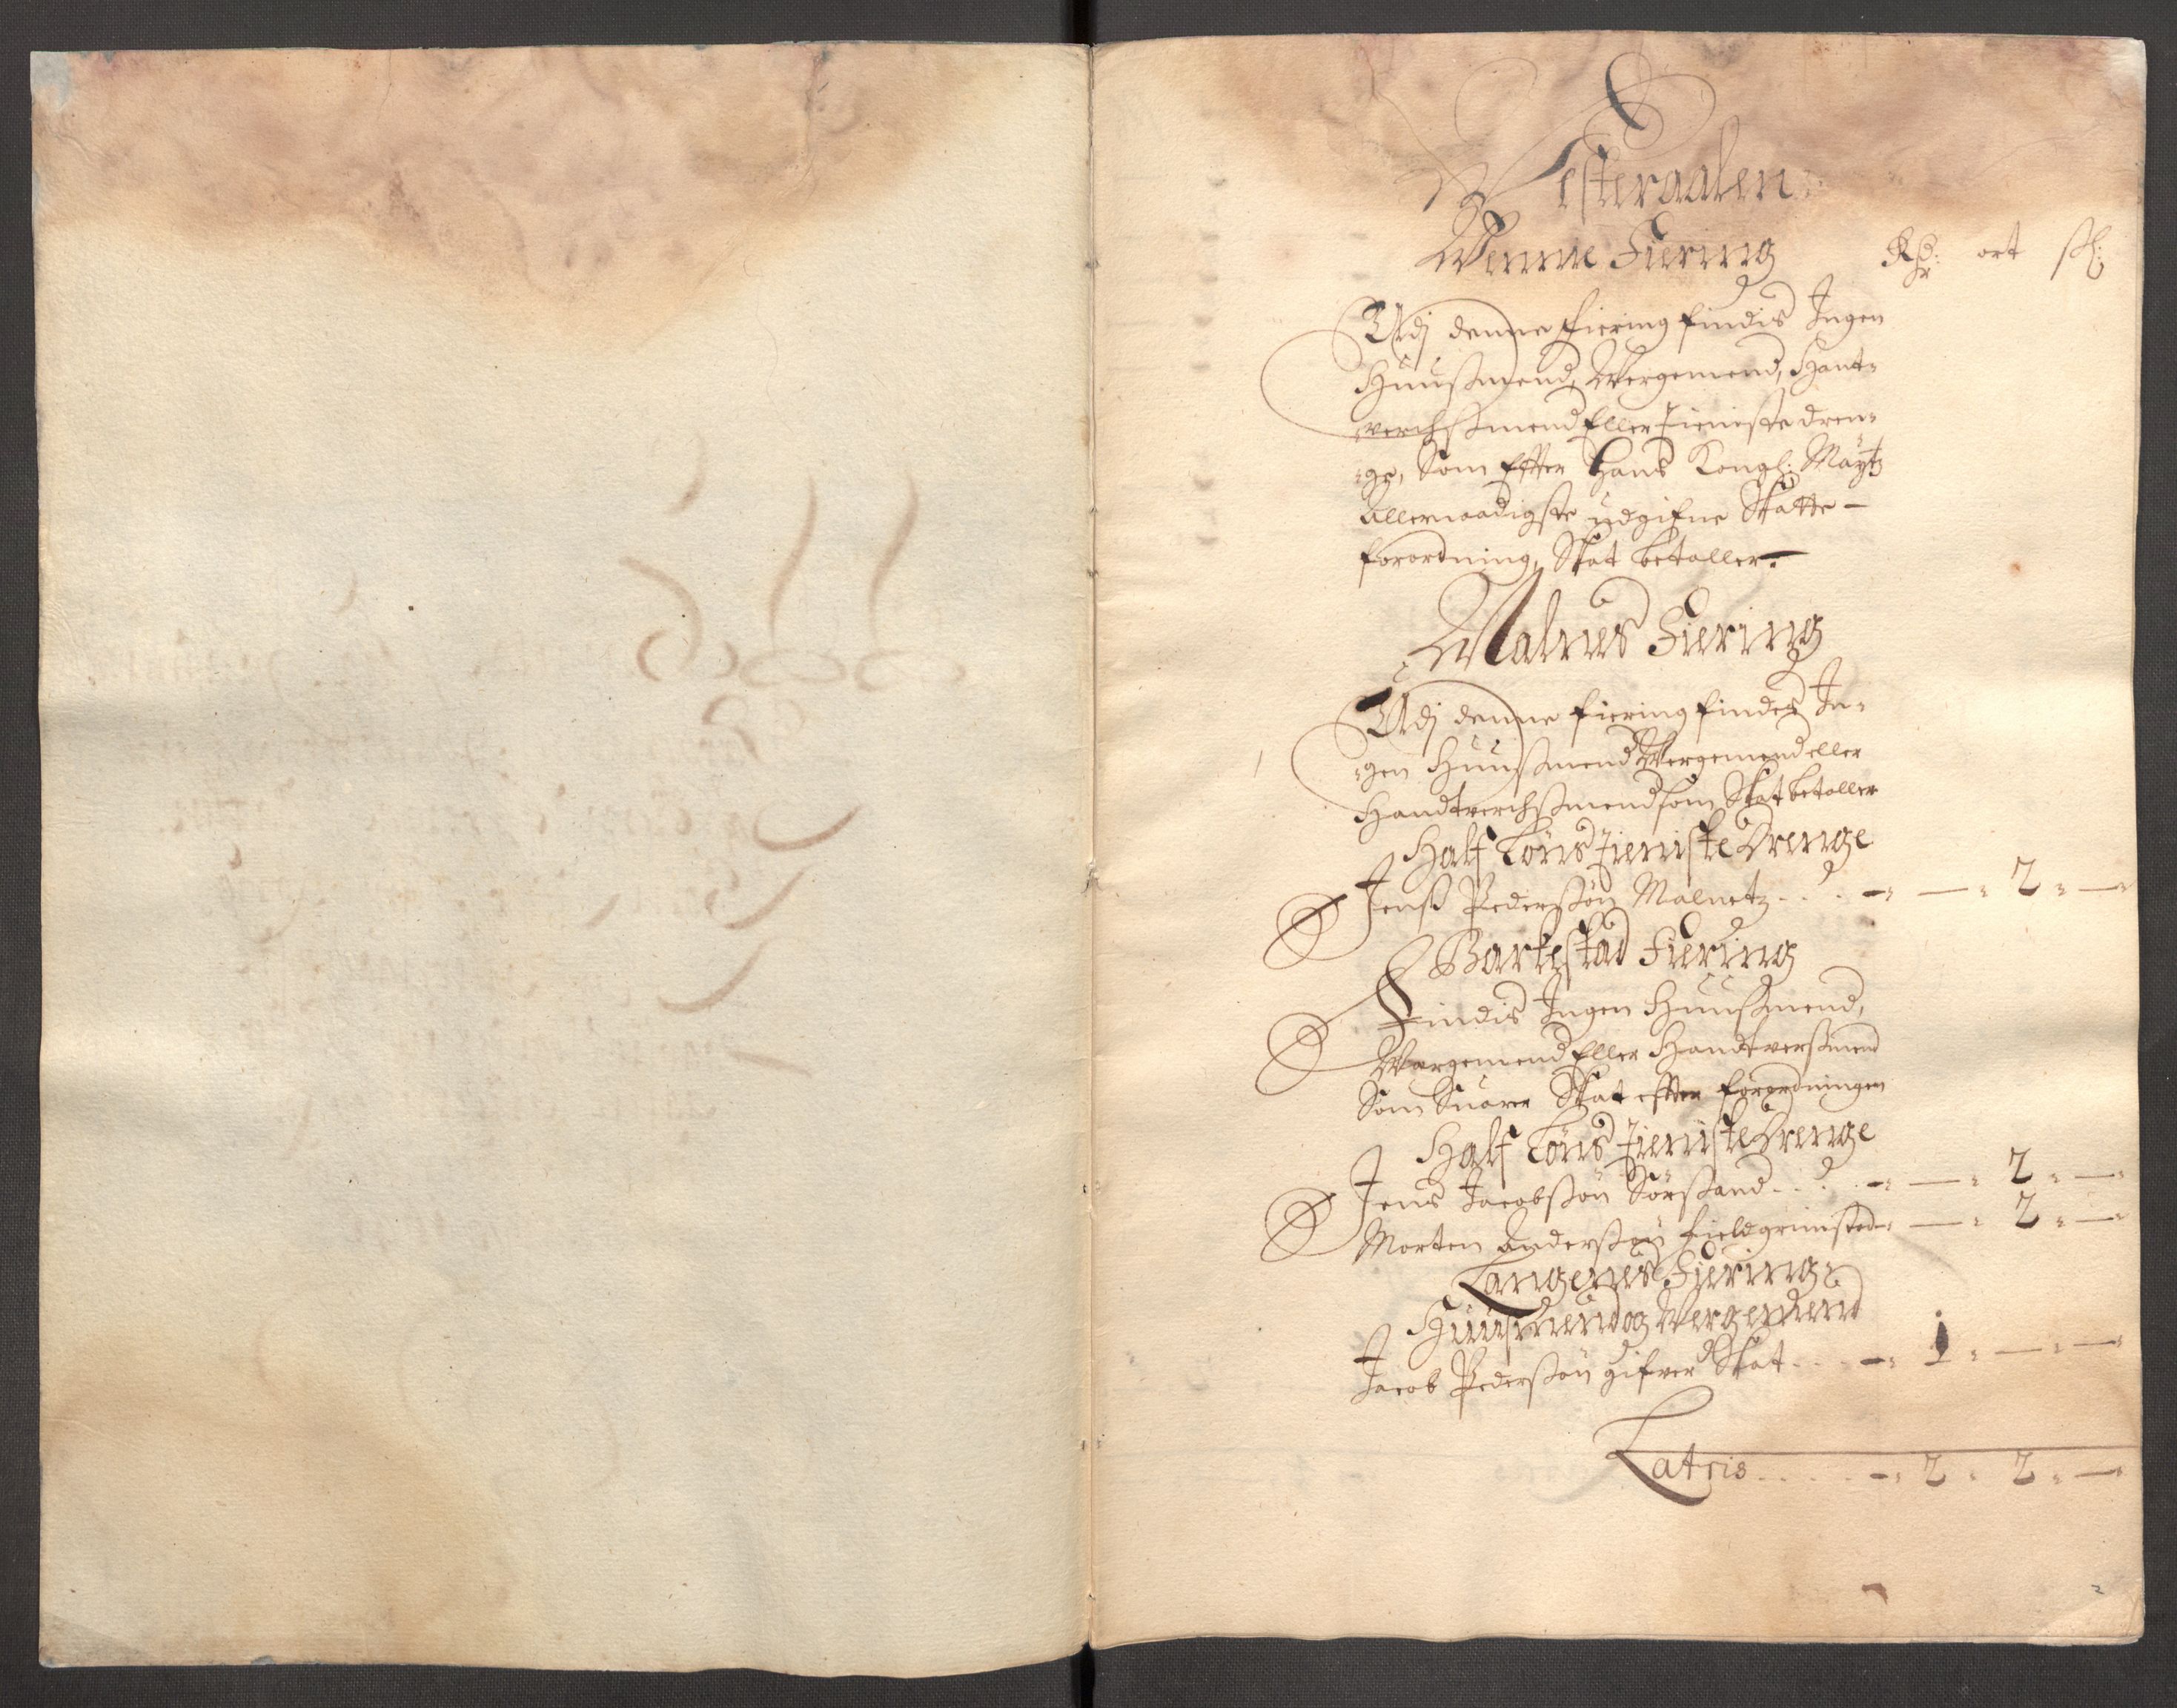 Westeraalen
Wenne Fiering Rdr: ort sk:
Udj denne fiering findis Ingen
Huusmend, Wergemend, Hant-
verchsmend Eller tieniste dren-
ge, Som Effter Hans Kongl: Maÿtz
allernaadigste udgifne Skatte-
forordning, Skat betaller.
Malnes Fiering
Udj denne fiering findes In-
gen Huusmend Wergemend eller
Handtverchsmend som Skat betaller
Half Löns Tieniste Drenge
Jenss Pederssön Malnetz - 2 -
Barkestad Fiering
Findis Ingen Huusmend,
Wergemend Eller Handtversmend
Som Suarer Skat effter forordningen
Half Löns Tieniste Drenge
Jens Jacobssön Sörsand - 2 -
Morten Anderssön fieldgrimsted - 2 -
Langenes Fiering
Huusmend og Wergemend
Jacob Pederssön gifver Skat - 1 - -
Latris - 2 - 2 -